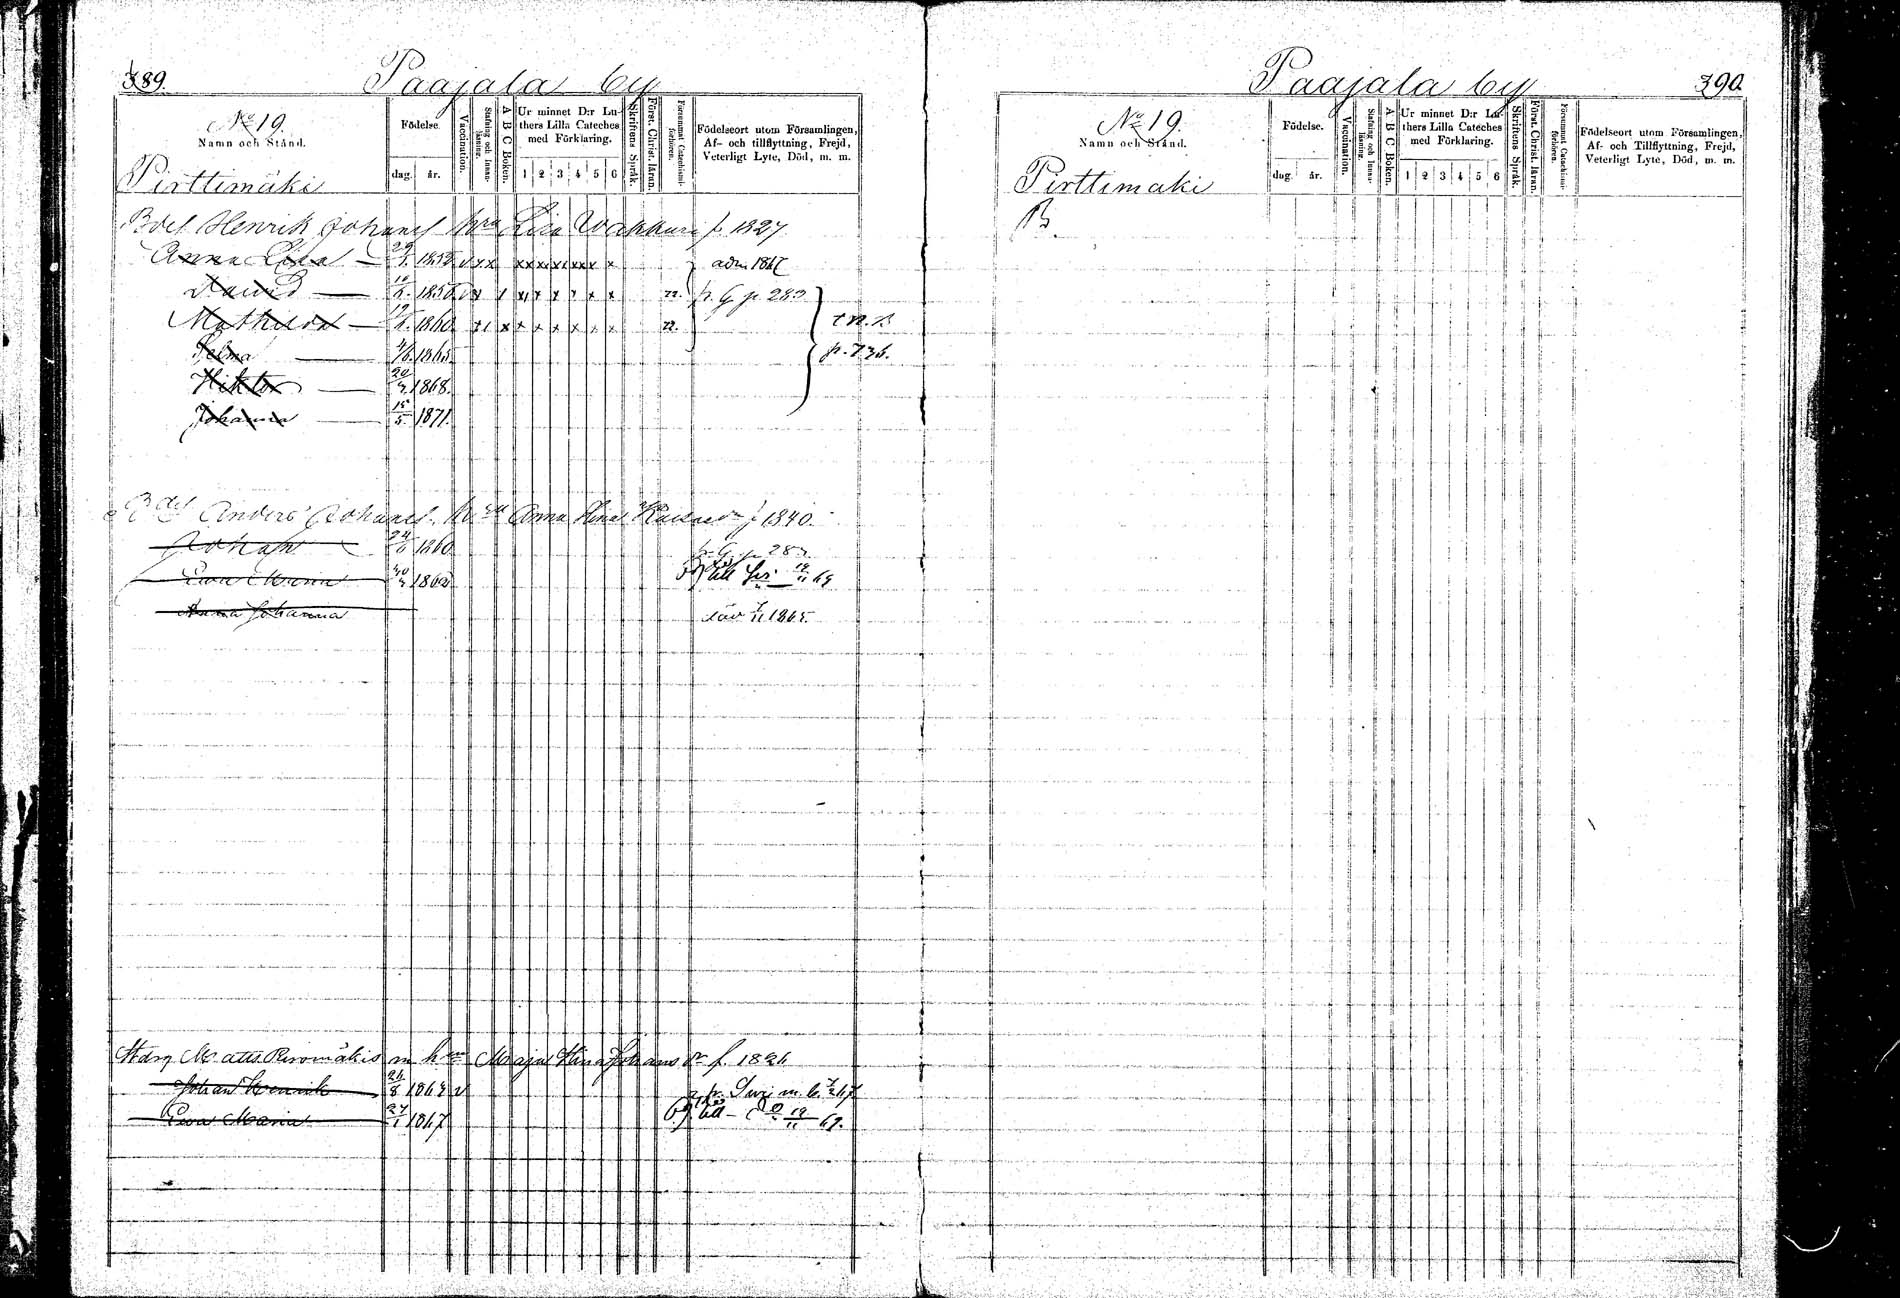 389.
Paajala by
No 19.
Namn och Stånd.
Födelse.
dag. år.
Vaccination.
Stafning och Innanläsning.
A B C Boken.
Ur minnet D:r Luthers Lilla Cateches med Förklaring.
1 2 3 4 5 6
Skriftens Språk.
Först. Christ. läran.
Försummat Catechismiförhören.
Födelseort utom Församlingen,
Af- och tillflyttning, Frejd,
Veterligt Lyte, Död, m. m.
Pirttimäki
Bdes. Henrik Johans. hru Lisa Wakkuri f. 1827
Anna Lisa 1852 adm 1867
David 1856 fr. G. p. 283
Mathilda 1860 t.n.B.
Selma 4/6. 1865. p. 736.
Hiktor 1868.
Johanna 15/5. 1871.
Bdes Anders Johans. hru Anna Stina f 1840.
Johan 24/6 1860 fr. G. p. 283
Ewa Maria 1862 till 12/11 69
Anna Johanna död 1865.
Matts m. hru Maja Stina Johansdr f. 1826
Johan Henrik 26/8 1863 v
Ewa Maria 27/1 1867 till 12/11 69.
Paajala by
390.
No 19.
Namn och Stånd.
Födelse.
dag. år.
Vaccination.
Stafning och Innanläsning.
A B C Boken.
Ur minnet D:r Luthers Lilla Cateches med Förklaring.
1 2 3 4 5 6
Skriftens Språk.
Först. Christ. läran.
Försummat Catechismiförhören.
Födelseort utom Församlingen,
Af- och Tillflyttning, Frejd,
Veterligt Lyte, Död, m. m.
Pirttimäki
B.